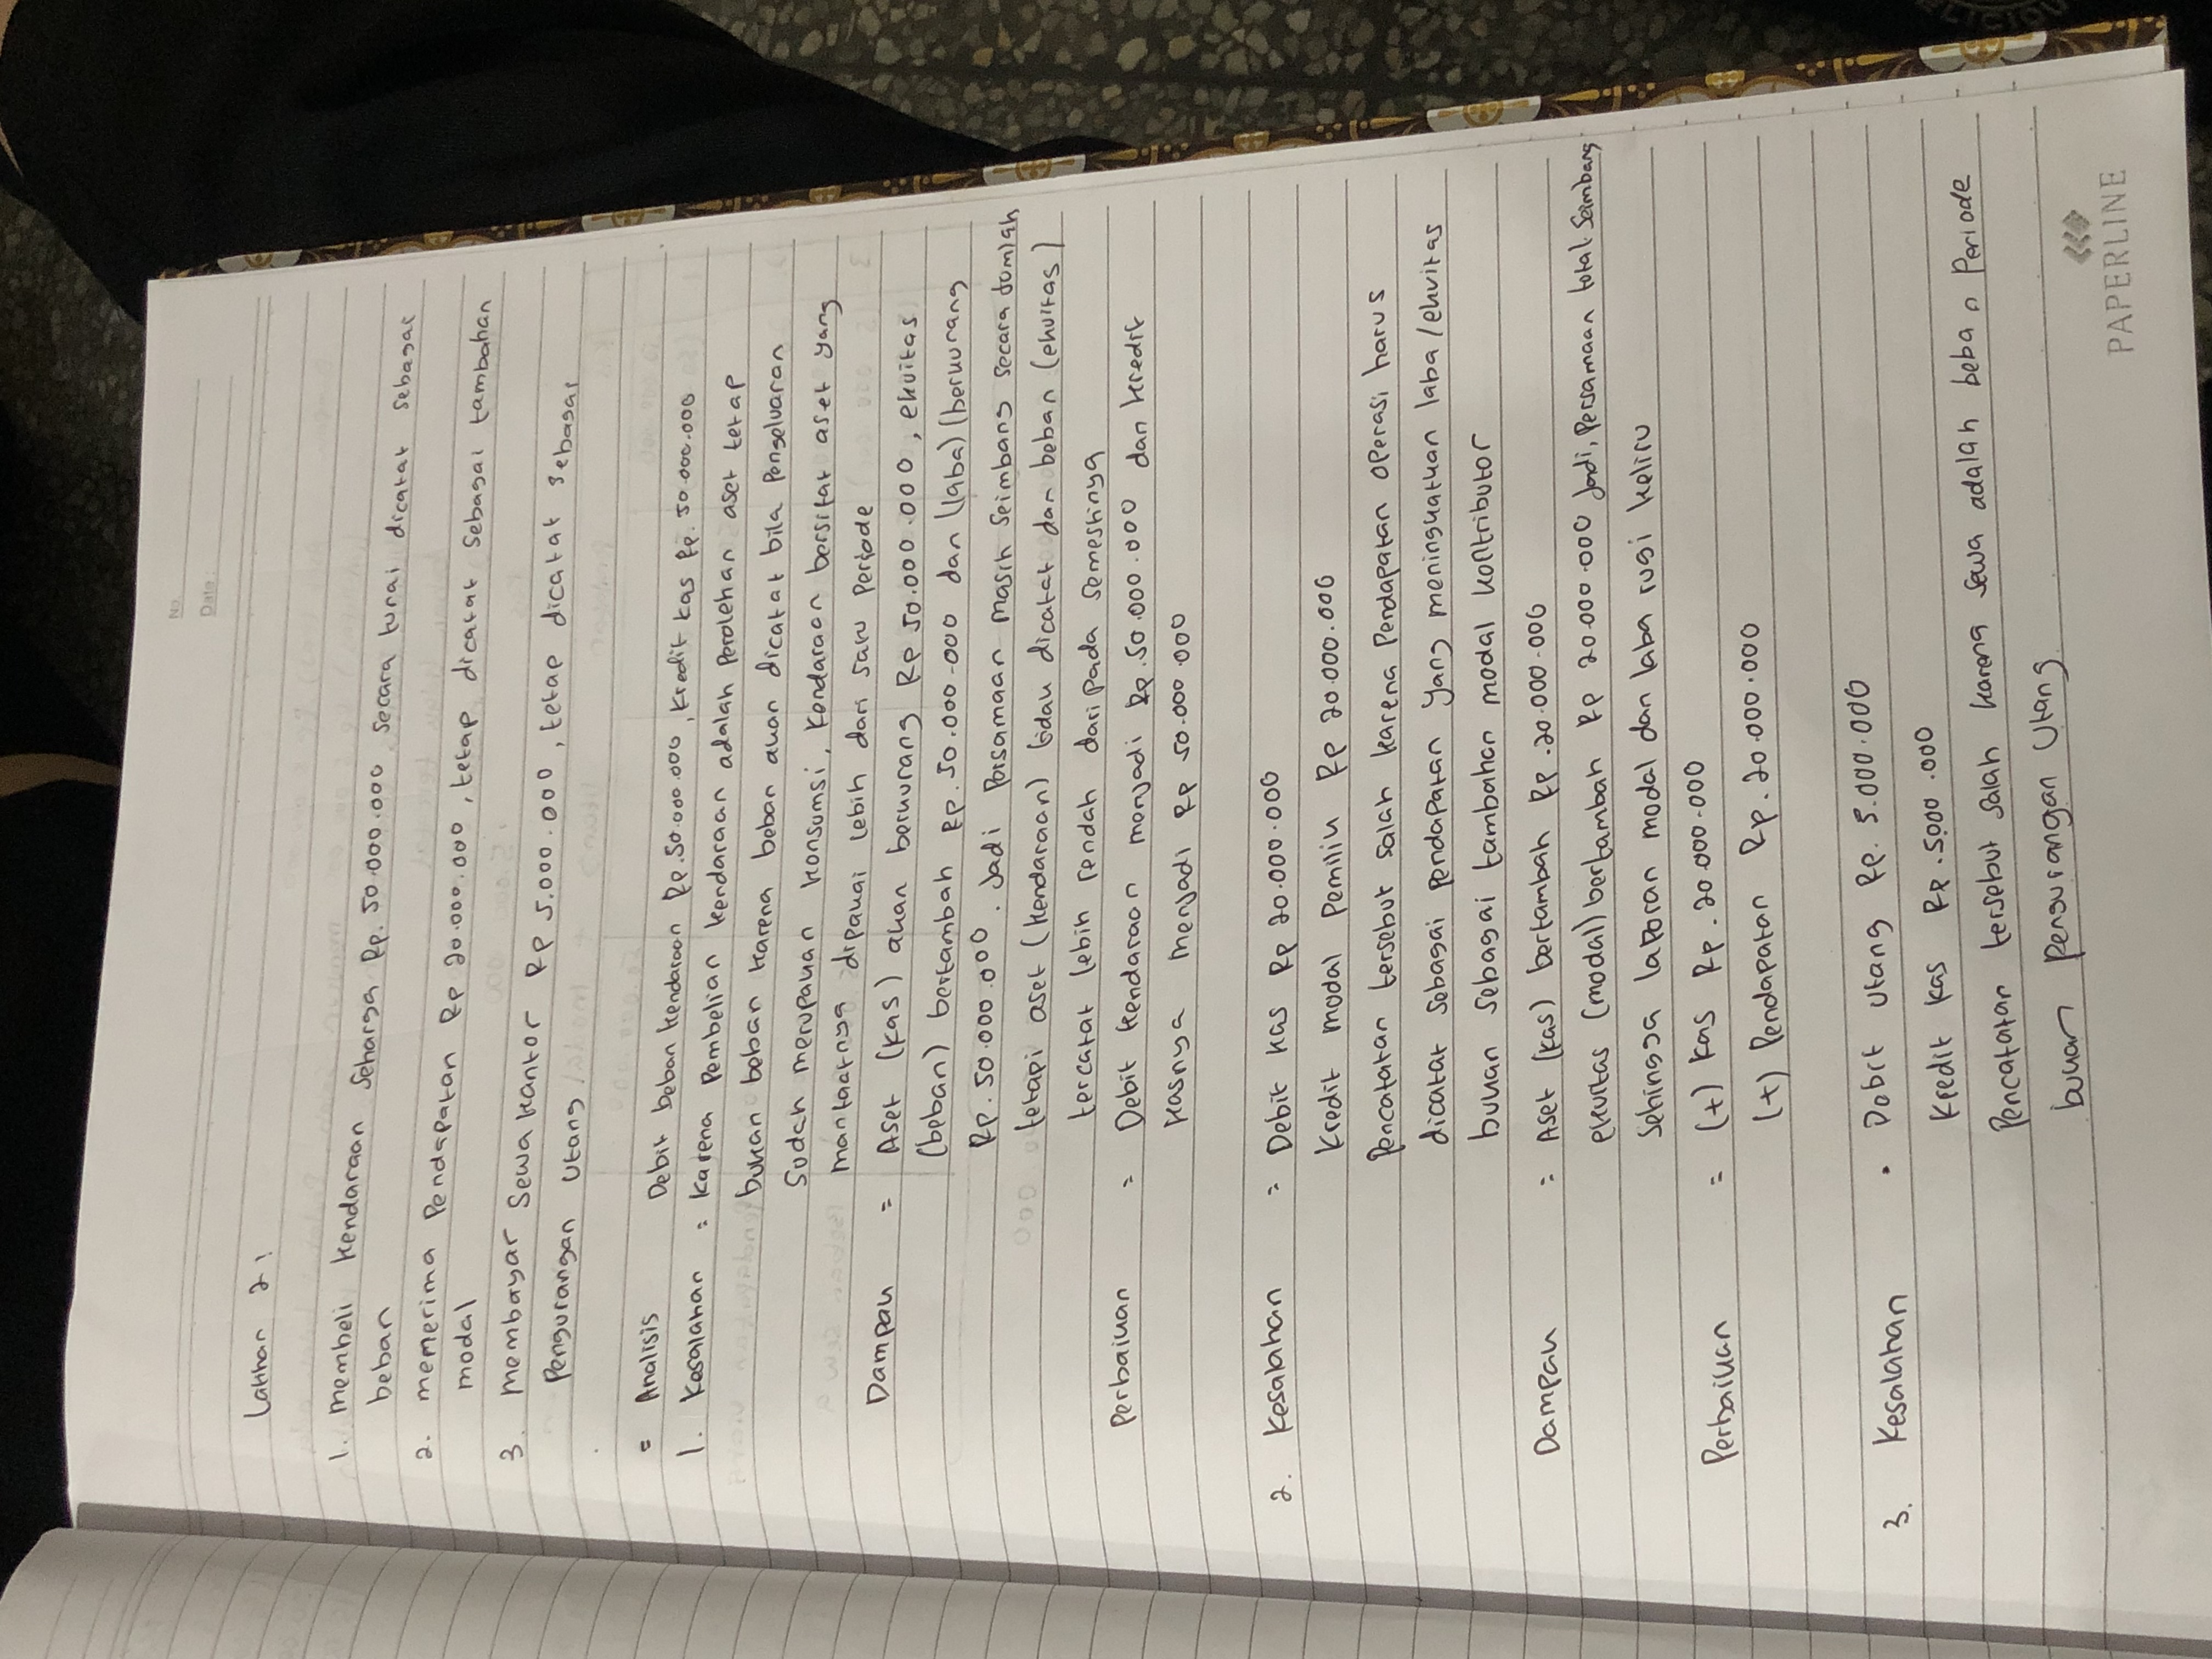 No.
Date:
Latihan 2!
1. membeli kendaraan seharga Rp. 50.000.000 secara tunai dicatat sebagai
beban
2. menerima Pendapatan Rp 20.000.000, tetap dicatat sebagai tambahan
modal
3. membayar sewa kantor Rp 5.000.000, tetap dicatat sebagai
Pengurangan Utang
= Analisis Debit beban kendaraan Rp.50.000.000, kredit kas Rp. 50.000.000
1. Kesalahan = Karena Pembelian kendaraan adalah Perolehan aset tetap
bukan beban karena beban akan dicatat bila Pengeluaran
Sudah merupakan konsumsi, Kendaraan bersifat aset yang
manfaatnya dipakai lebih dari satu Periode
Dampak = Aset (kas) akan berkurang Rp 50.000.000, ekuitas
(beban) bertambah Rp.50.000.000 dan (laba) (berkurang
Rp.50.000.000. Jadi Persamaan masih seimbang secara Jumlah
tetapi aset (kendaraan) tidak dicatat dan beban (ekuitas)
tercatat lebih rendah daripada semestinya
Perbaikan = Debit kendaraan menjadi Rp.50.000.000 dan kredit
kasnya menjadi Rp 50.000.000
2. Kesalahan = Debit kas Rp 20.000.000
Kredit modal Pemilik Rp 20.000.000
Pencatatan tersebut salah karena Pendapatan operasi harus
dicatat sebagai Pendapatan yang meningkatkan laba/ekuitas
bukan sebagai tambahan modal kontributor
Dampak = Aset (kas) bertambah Rp.20.000.000
ekuitas (modal) bertambah Rp 20.000.000 Jadi, Persamaan total seimbang
Sehingga laporan modal dan laba rugi keliru
Perbaikan = (+) kas Rp.20.000.000
(+) Pendapatan Rp.20.000.000
3. Kesalahan • Debit utang Rp. 5.000.000
Kredit kas Rp.5.000.000
Pencatatan tersebut salah karena sewa adalah beban Periode
bukan Pengurangan Utang
PAPERLINE